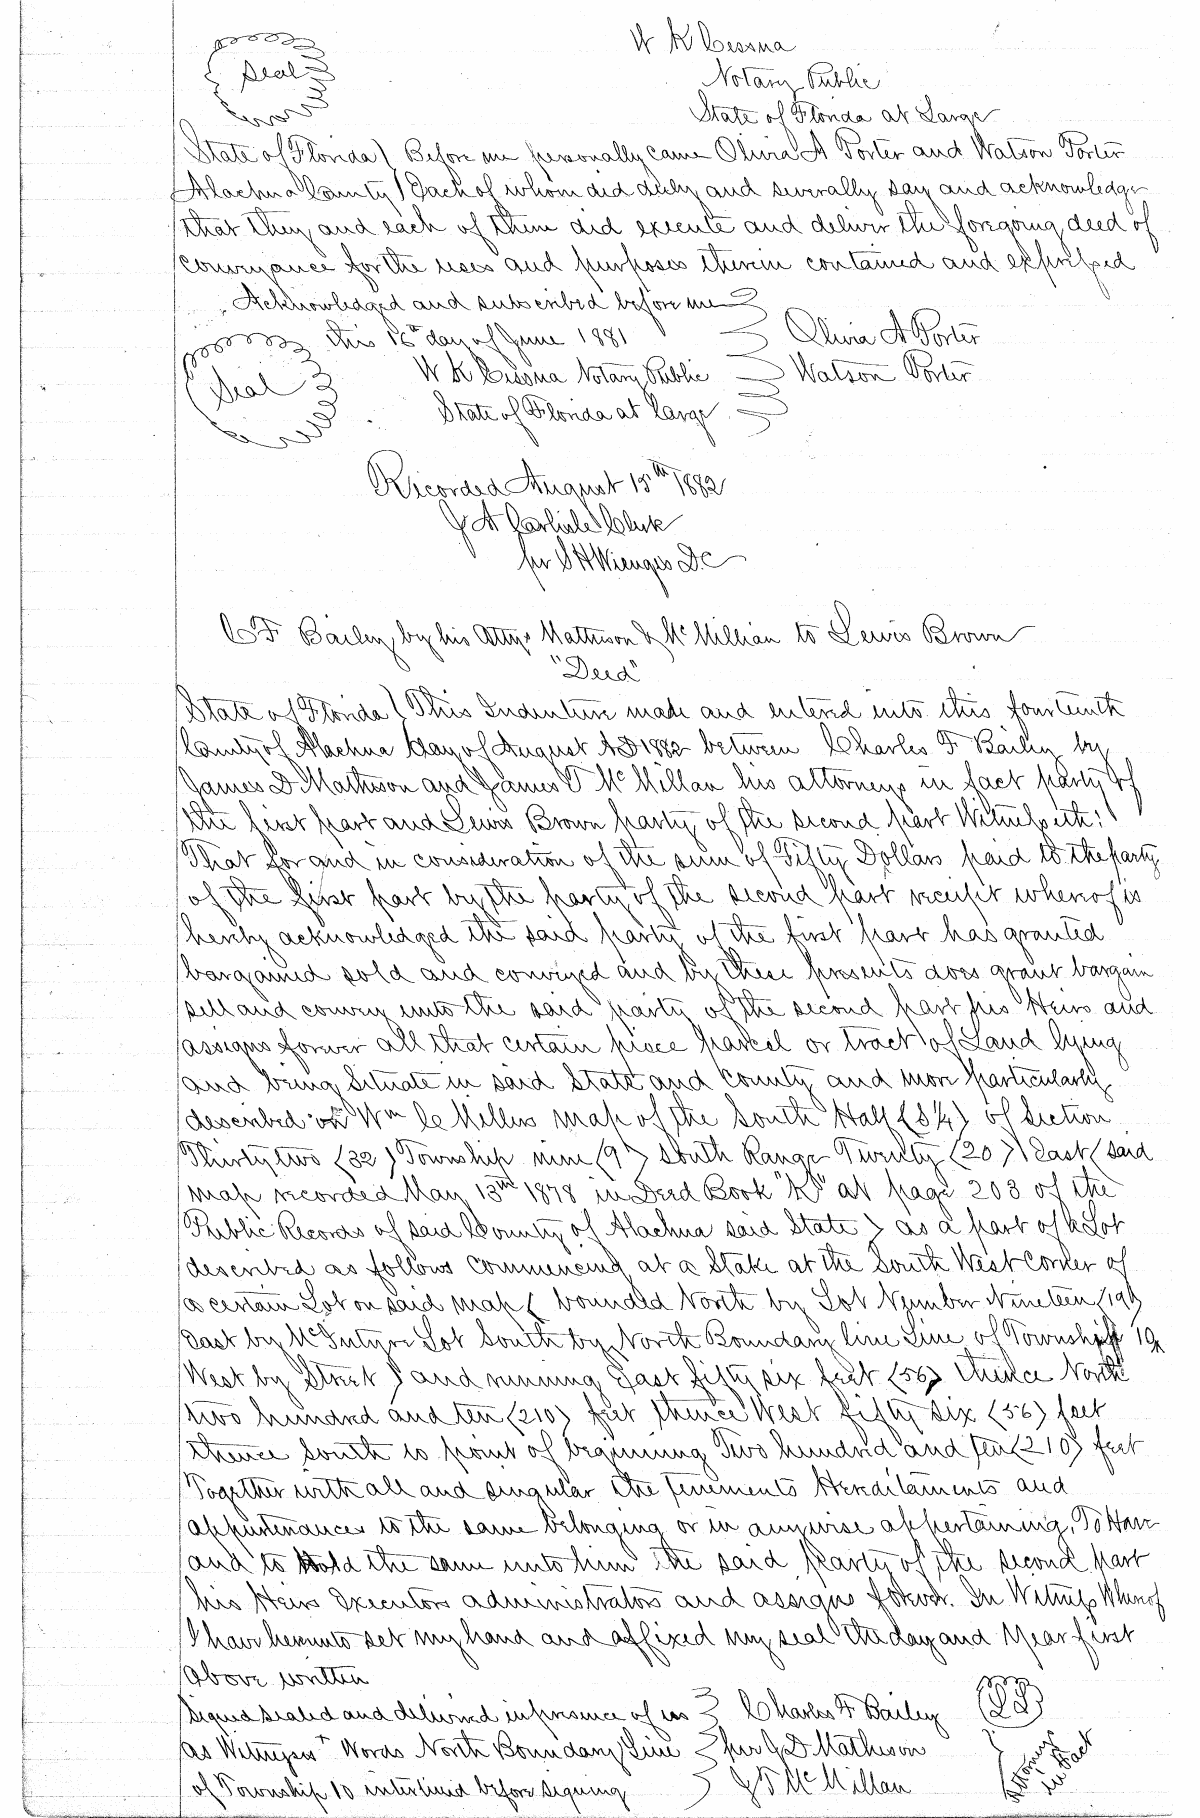 Seal
W K Cessna
Notary Public
State of Florida at Large
State of Florida } Before me personally came Olivia A Porter and Watson Porter
Alachua County } Each of whom did duly and severally say and acknowledge
that they and each of them did execute and deliver the foregoing deed of
conveyance for the uses and purposes therein contained and expressed
Acknowledged and subscribed before me
this 16th day of June 1881 Olivia A Porter
Seal W K Cessna Notary Public Watson Porter
State of Florida at Large
Recorded August 15th 1882
J A Carlisle Clerk
per S H Wienges D.C
C F Bailey by his Attys Matheson & McMillian to Lewis Brown
"Deed"
State of Florida } This Indenture made and entered into this fourteenth
County of Alachua } day of August AD 1882 between Charles F Bailey by
James D Matheson and James T McMillan his attorneys in fact party of
the first part and Lewis Brown party of the second part Witnesseth:
That for and in consideration of the sum of Fifty Dollars paid to the party
of the first part by the party of the second part receipt whereof is
hereby acknowledged the said party of the first part has granted
bargained sold and conveyed and by these presents does grant bargain
sell and convey unto the said party of the second part his Heirs and
assigns forever all that certain piece parcel or tract of Land lying
and being Situate in said State and County and more particularly
described on Wm C Millers map of the South Half (S½) of Section
Thirty two (32) Township nine (9) South Range Twenty (20) East (said
map recorded May 13th 1878 in Deed Book "K" at page 203 of the
Public Records of said County of Alachua said State) as a part of a Lot
described as follows commencing at a Stake at the South West corner of
a certain Lot on said map ( bounded North by Lot Number Nineteen (19)
East by McIntyre Lot South by North Boundary line Line of Township 10
West by Street ) and running East fifty six feet (56) thence North
two hundred and ten (210) feet thence West fifty six (56) feet
thence South to point of beginning Two hundred and ten (210) feet
Together with all and singular the tenements Hereditaments and
appurtenances to the same belonging or in anywise appertaining, To Have
and to Hold the same unto him the said Party of the second part
his Heirs Executors administrators and assigns forever. In Witness Whereof
I have hereunto set my hand and affixed my seal the day and Year first
Above written
Signed sealed and delivered in presence of us Charles F Bailey LS
as Witnesses Words North Boundary Line per J D Matheson
of Township 10 interlined before signing J T McMillan
Attorneys
in Fact